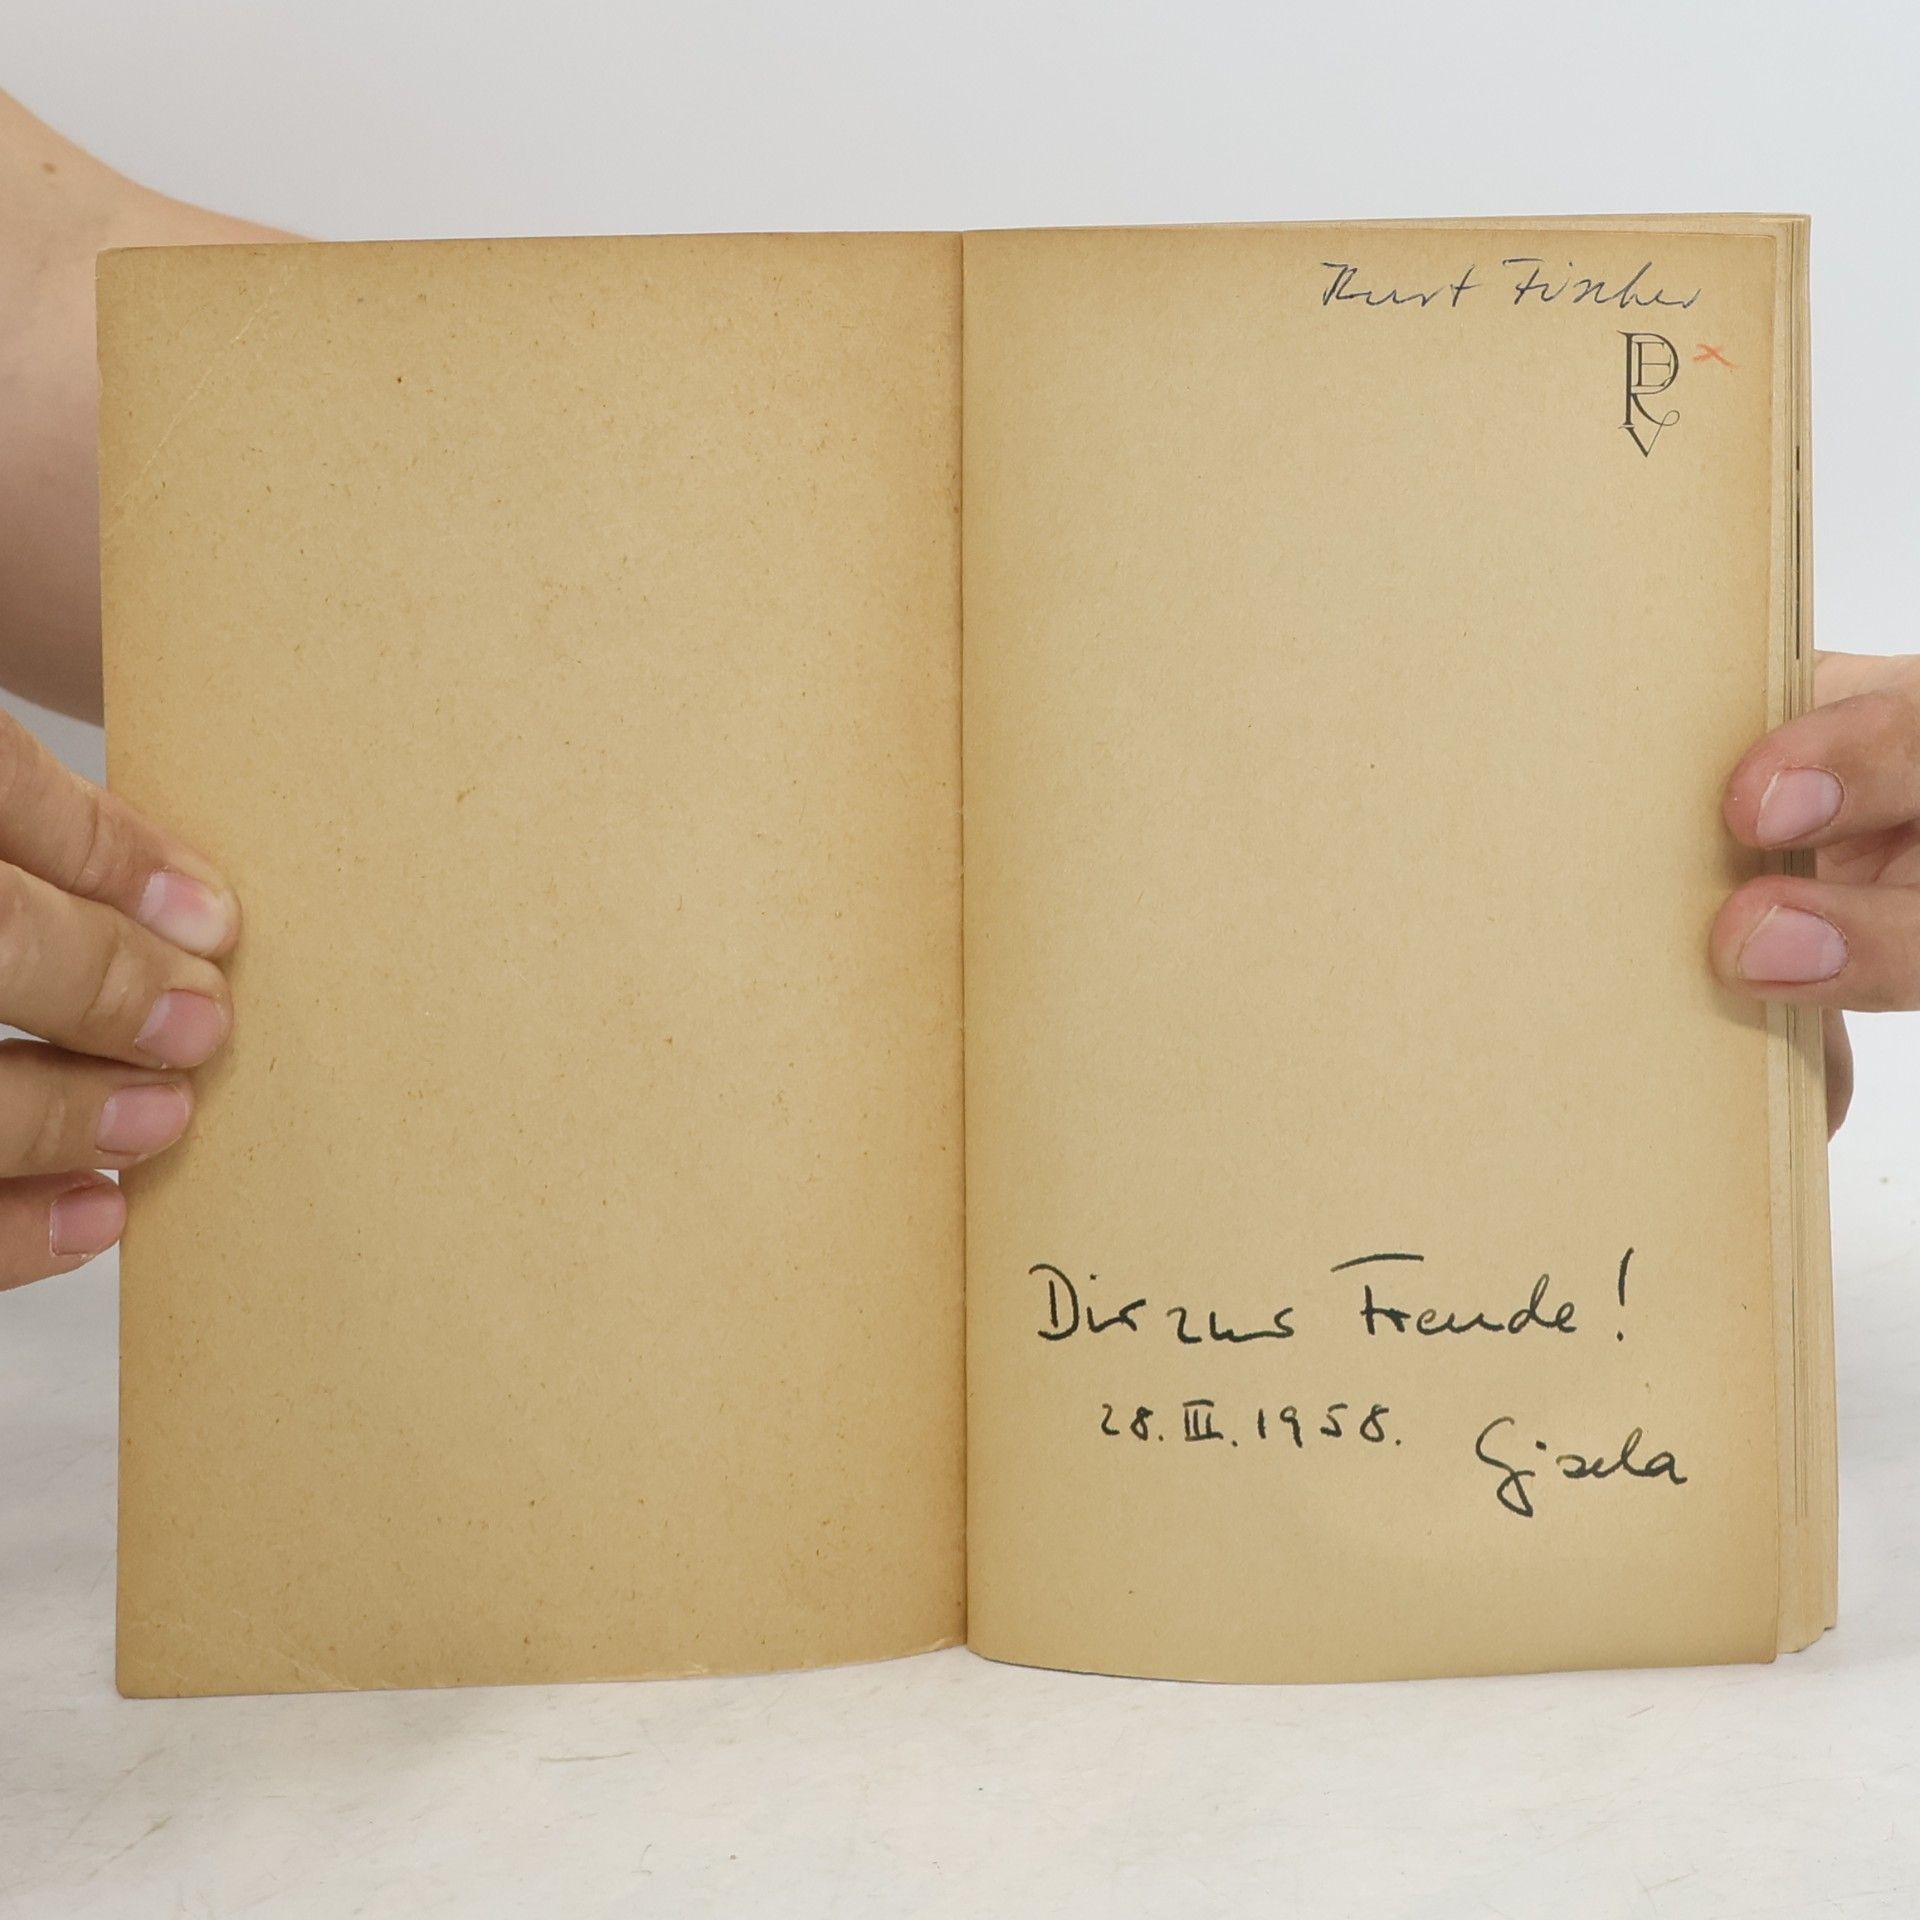 Kurt Fischer
REV
x
Dir zur Freude!
28. III. 1958.
Gisela